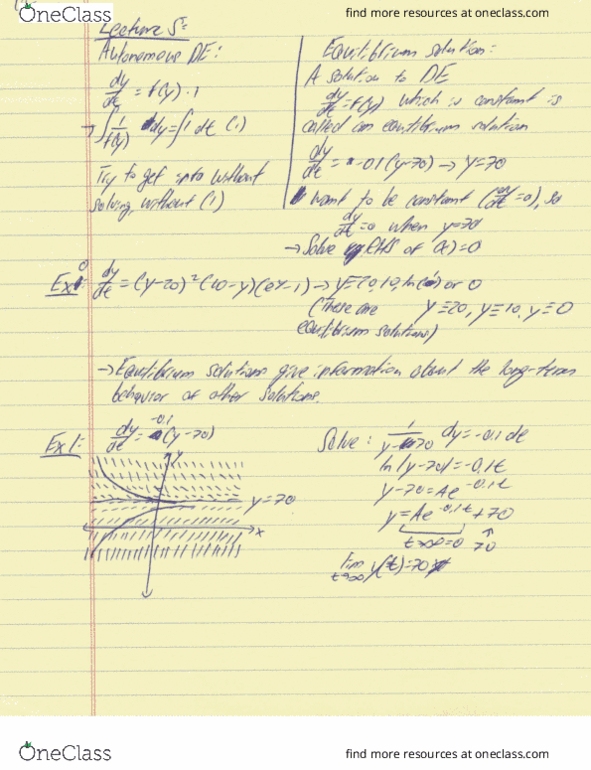 OneClass
find more resources at oneclass.com
Lecture 5:
Autonomous DE:
dy/dt = f(y)·1
→ ∫ 1/f(y) dy = ∫ 1 dt (1)
Try to get info without
solving, without (1)
Equilibrium solution:
A solution to DE
dy/dt = f(y) which is constant is
called an equilibrium solution
dy/dt = -0.1(y-70) → y=70
want to be constant (dy/dt = 0), so
dy/dt = 0 when y=70
→ Solve RHS of =0
Ex 0: dy/dt = (y-20)²(10-y)(e^y-1) → y = 20, 10, or 0
(These are y=20, y=10, y=0
equilibrium solutions)
→ Equilibrium solutions give information about the long-term
behavior of other solutions.
Ex 1: dy/dt = -0.1(y-70)
y
y=70
x
Solve: 1/(y-70) dy = -0.1 dt
ln|y-70| = -0.1t
y-70 = Ae^-0.1t
y = Ae^-0.1t + 70
t→∞=0 70
lim t→∞ y(t) = 70
OneClass
find more resources at oneclass.com